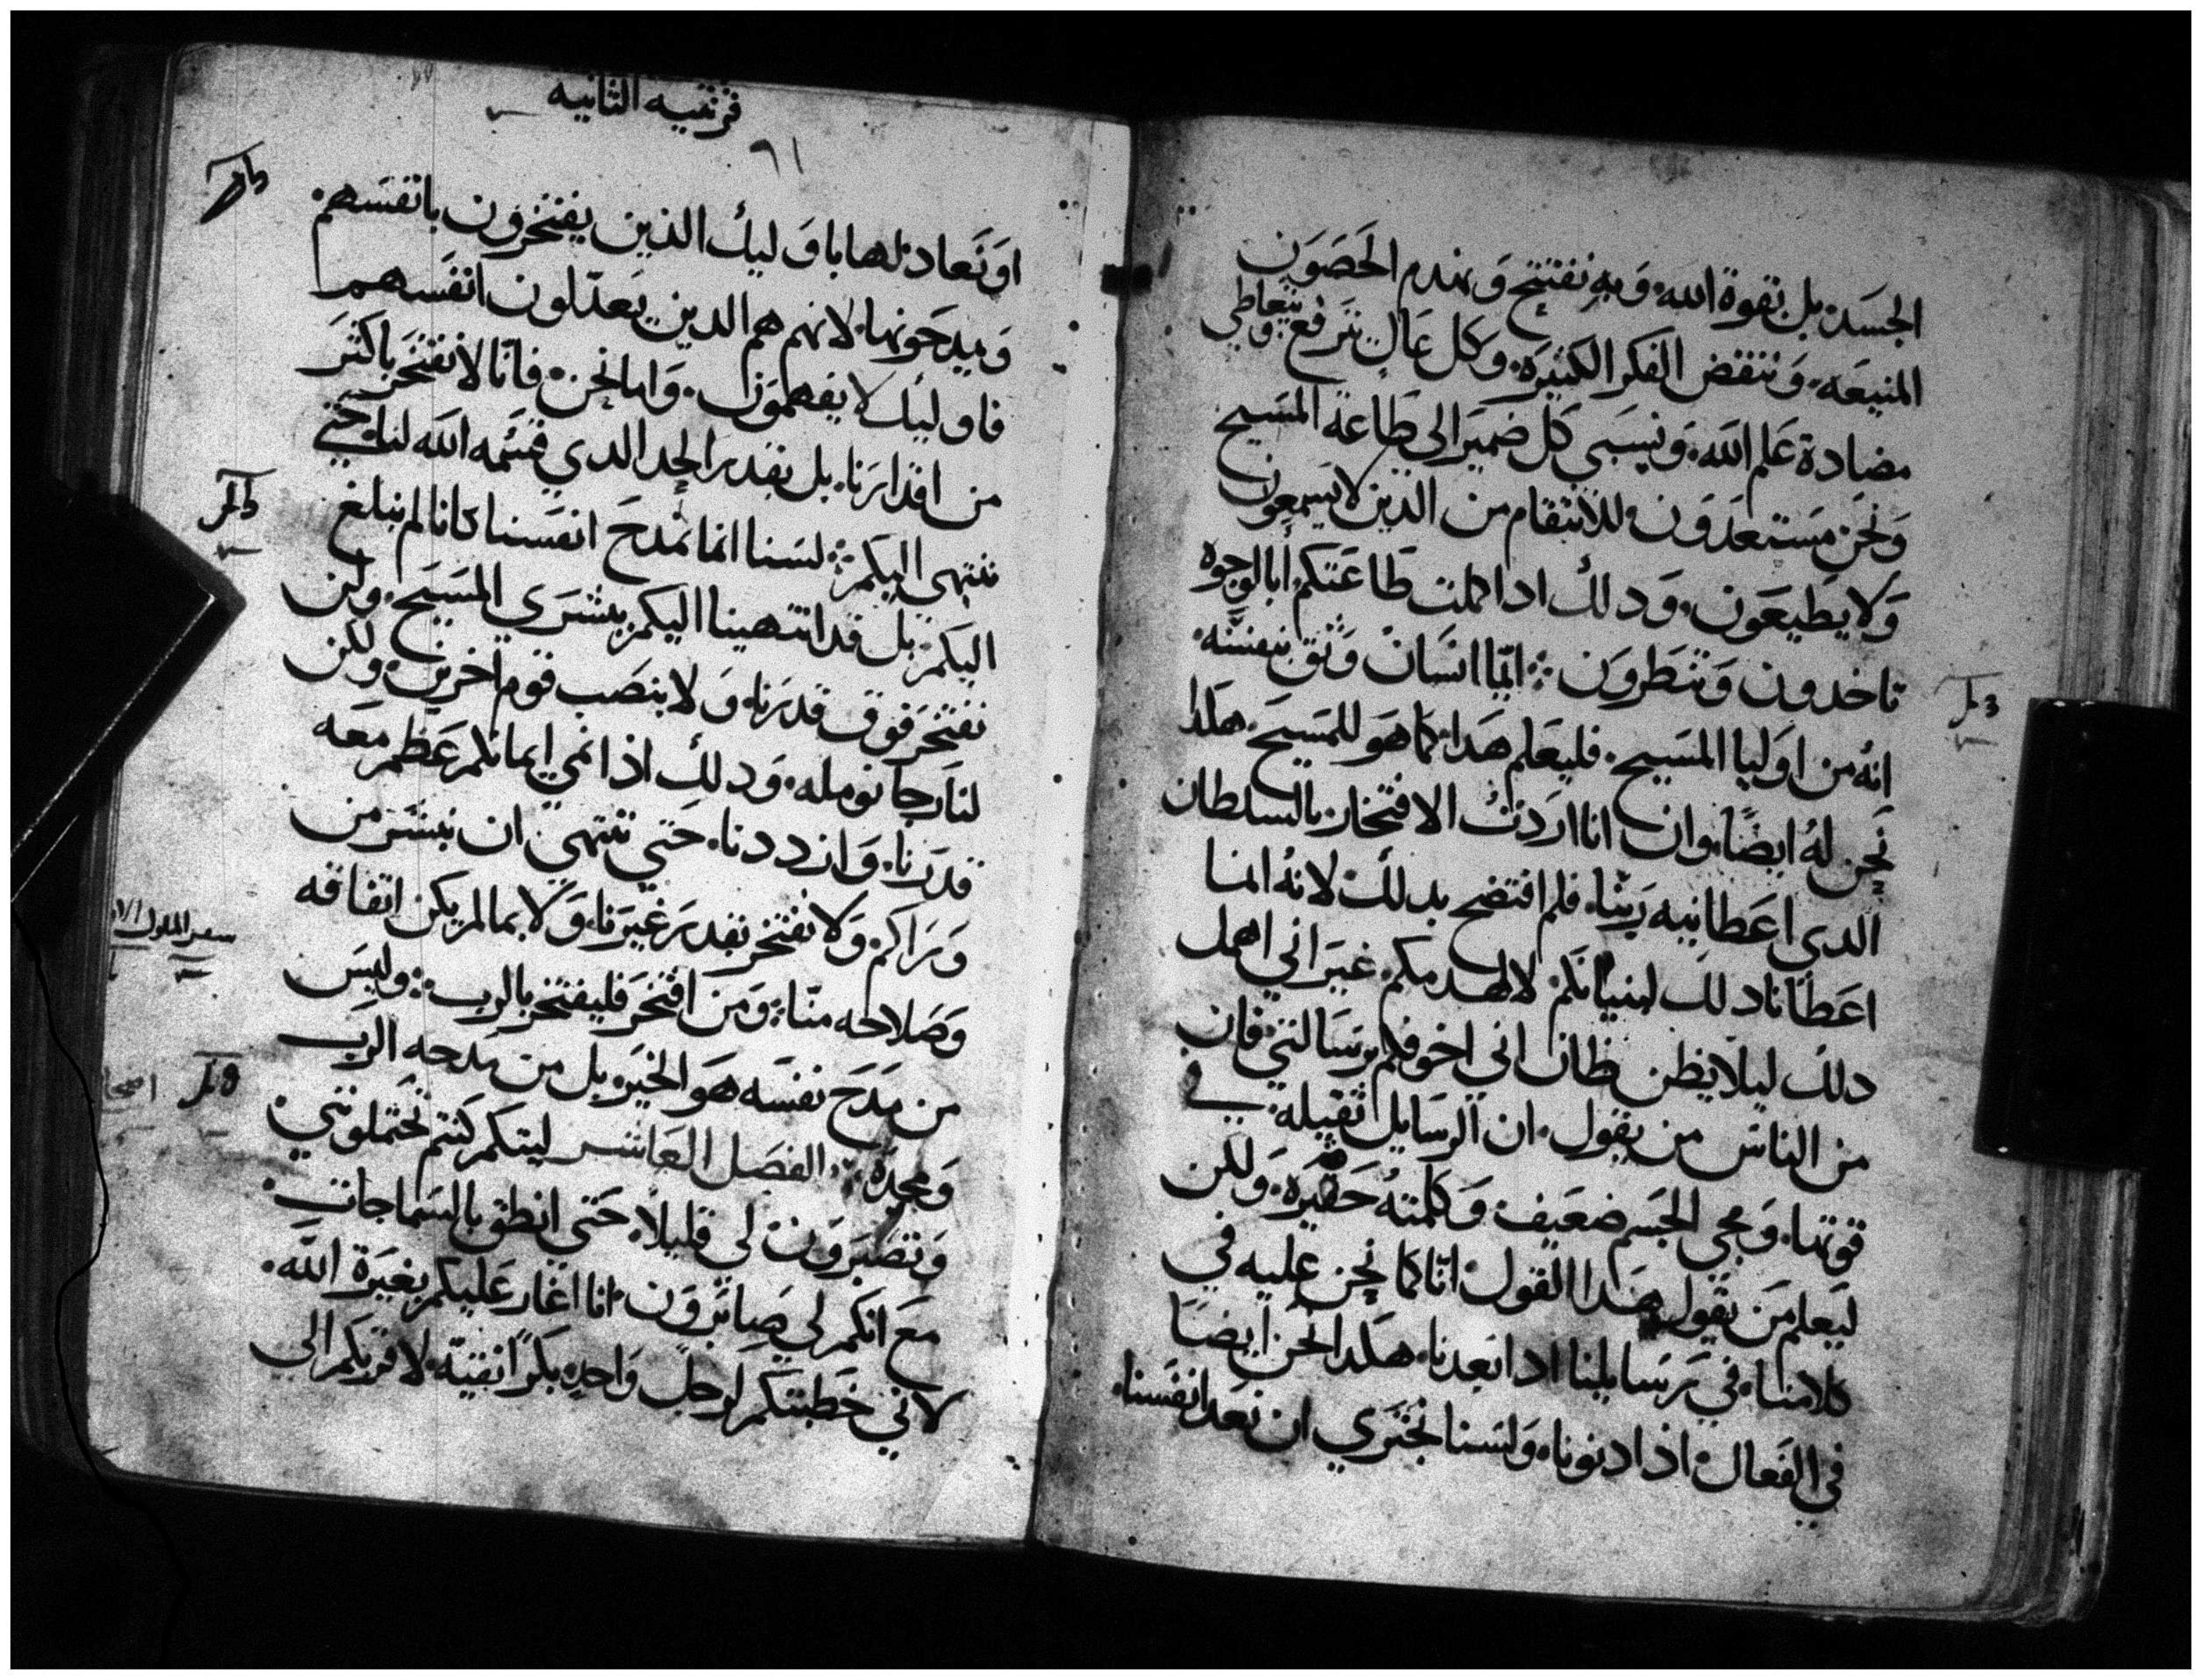 الجسد بل بقوة الله وبه نفتتح ونهدم الحصون
المنيعه وننقض الفكر الكثيره وكل عال يترفع ويتعاطي
مضادة علم الله ونسبي كل ضمير الي طاعة المسيح
ونحن مستعدون للانتقام من الذين لا يسمعون
ولا يطيعون ودلك ادا كملت طاعتكم أبالوجوه
تاخدون وتنظرون ايما انسان وثق بنفسه
انه من اوليا المسيح فليعلم هدا كما هو للمسيح هكدا
نحن له ايضا وان انا اردت الافتخار بالسلطان
الدي اعطانيه ربنا فلم افتضح بدلك لانه انما
اعطانا دلك لبنيانكم لا لهدمكم غير اني اهمل
دلك ليلا يظن ظان اني اخوفكم برسالتي فان
من الناس من يقول ان الرسايل ثقيله في
قوتها ومجي الجسم ضعيف وكلمته حقيره ولكن
ليعلم من يقول هدا القول انا كما نحن عليه في
كلامنا في رسايلنا ادا بعدنا هكدا نحن ايضا
في الفعال اذا دنونا ولسنا نجتري ان نعد انفسنا
قرنتيه الثانيه
٦١
او نعادلها باوليك الذين يفتخرون بانفسهم
ويمدحونها لانهم هم الدين يعدلون انفسهم
فاوليك لا يفهمون واما نحن فانا لا نفتخر باكثر
من اقدارنا بل بقدر الحد الدي قسمه الله لنا حتي
ننتهي اليكم لسنا انما نمدح انفسنا كانا لم نبلغ
اليكم بل قد انتهينا اليكم ببشري المسيح ولن
نفتخر فوق قدرنا ولا بنصب قوم اخرين ولكن
لنا رجا نومله ودلك اذا نمي ايمانكم عظم معه
قدرنا وازددنا حتي ننتهي ان نبشر من
وراكم ولا نفتخر بقدر غيرنا ولا بما لم يكن اتفاقه
سفر الملوك الاو
وصلاحه منا ومن افتخر فليفتخر بالرب وليس
من مدح نفسه هو الخير بل من مدحه الرب
ومجده الفصل العاشر ليتكم كنتم تحتملونني
وتصبرون لي قليلا حتي انطق بالسماجات
مع انكم لي صابرون انا اغار عليكم بغيرة الله
لاني خطبتكم لرجل واحد بكرا نقيه لاقربكم الي